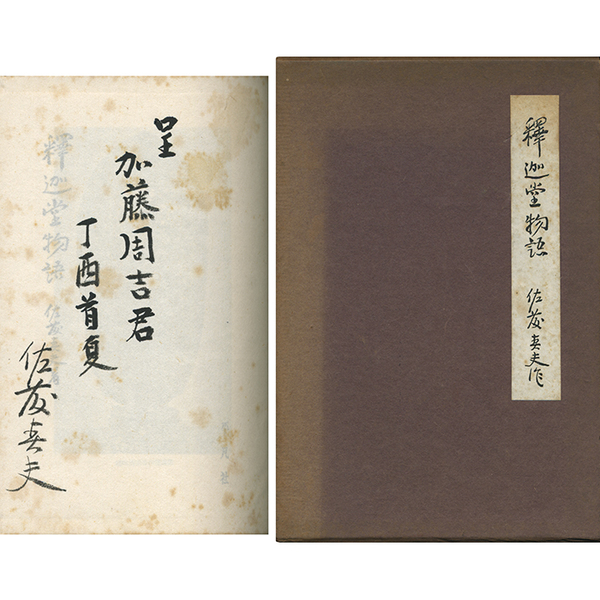 呈
加藤周吉君
丁酉首夏
佐藤春夫
釋迦堂物語
佐藤春夫作
釋迦堂物語